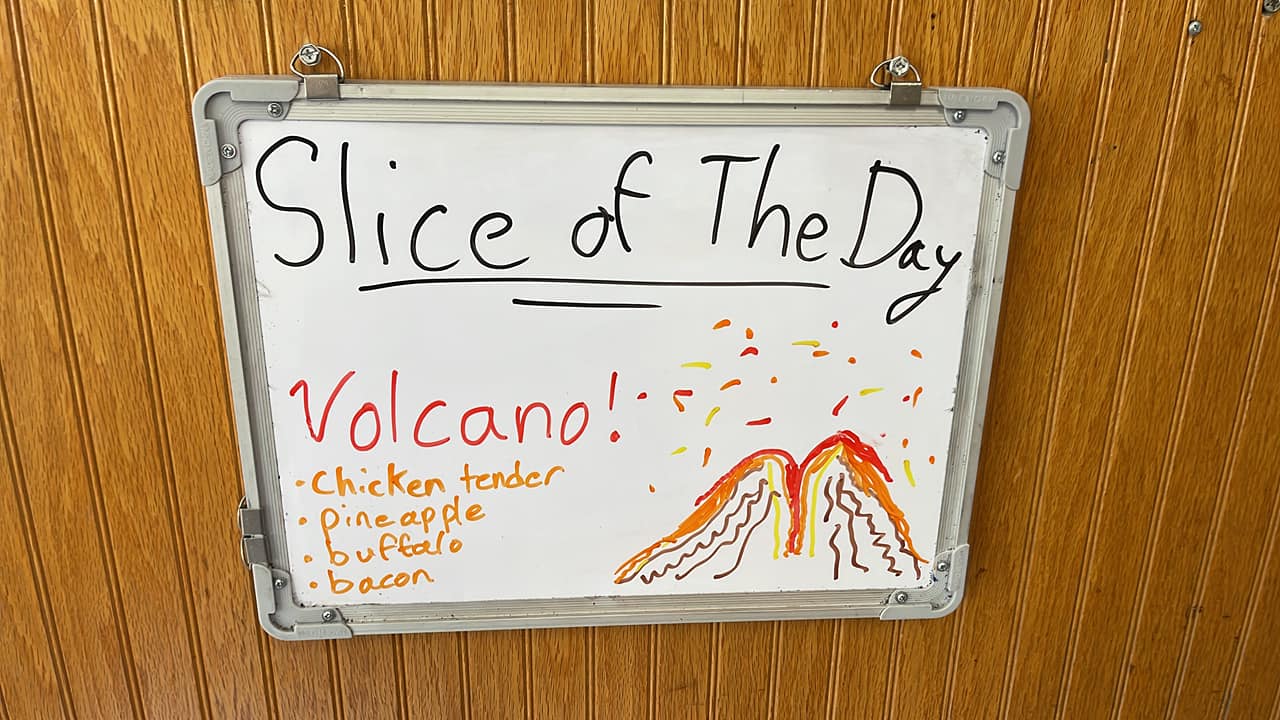 Slice of The Day
Volcano!
· chicken tender
· pineapple
· buffalo
· bacon